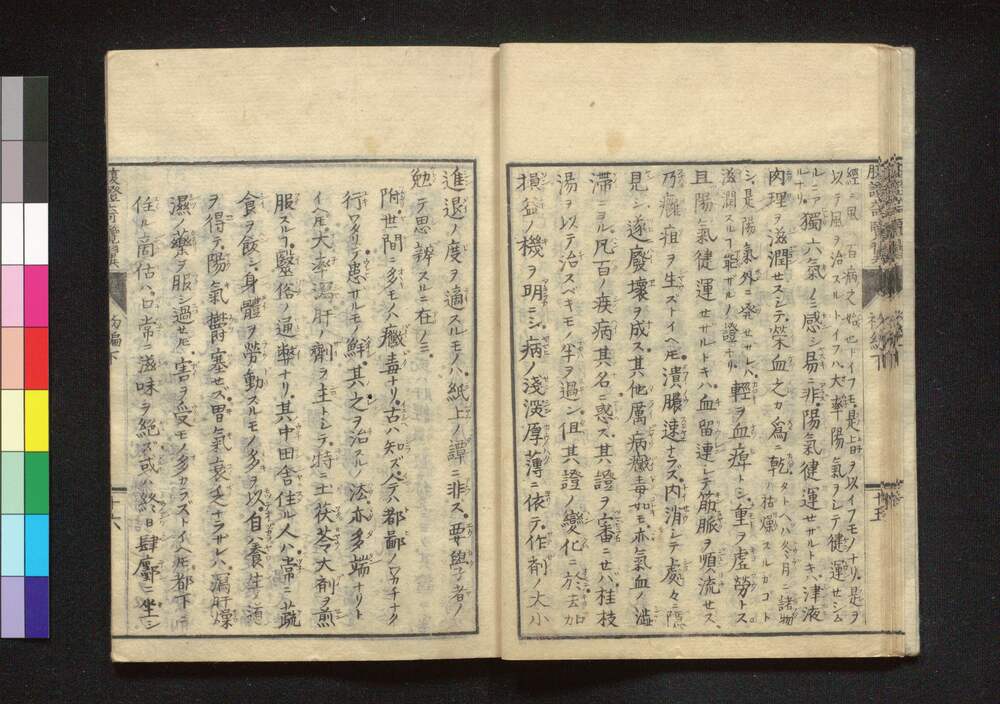 經ニ風 百病之始也トイフモ是上ヲ以イフモノナリ是ヲ
以テ風ヲ治スルトイフハ大率陽氣ヲシテ健運セシム
ルニアリ獨六氣ノミ感シ易ニ非陽氣健運セサルトキハ津液
肉理ヲ滋潤セスシテ榮血之カ爲ニ乾タトヘハ冬月ニ諸物ノ枯燥スルカコト
シ是陽氣外ニ發セサレバ滋潤スルコ能サルノ證ナリ輕ヲ血痺トシ重ヲ虚勞トス
且陽氣健運セサルトキハ血留連シテ筋脈ヲ順流セス
乃癰疽ヲ生ストイヘ𪜈潰膿速ナラズ内消シテ處々ニ隱
見シ遂廢壞ヲ成ス其他厲病黴毒ノ如モ亦氣血ノ澁
滯ニヨル凡百ノ疾病其名ニ惑ス其證ヲ審ニセバ桂枝
湯ヲ以テ治スベキモノ半ヲ過ン但其證ノ變化ニ方去加
損益ノ機ヲ明ニシ病ノ淺深厚薄ニ依テ作劑ノ大小
十五
進退ノ度ヲ適スルモノハ紙上ノ譚ニ非ス要學者ノ
勉テ思辨スルニ在ノミ
附世間ニ多モノハ黴毒ナリ古ハ知ズ今ハ都鄙ノワカチナク
行ワタリテ患サルモノ鮮其之ヲ治スルノ法亦多端ナリト
イヘ𪜈大率瀉肝ノ劑ヲ主トシテ特ニ土茯苓大劑ヲ煎
服スルコ醫俗ノ通弊ナリ其中田舎住ル人ハ常ニ蔬
食ヲ飯シ身體ヲ勞動スルモノ多ヲ以自ハ養生ノ道
ヲ得テ陽氣鬱塞セズ胃氣衰乏ナラサレハ瀉肝燥
濕ノ藥ヲ服シ過セ𪜈害ヲ受モノ多カラズトイヘ𪜈都下ニ
住ル商估ハ口常ニ滋味ヲ絶ズ或ハ終日肆鄽ニ坐シ
初編下
十六